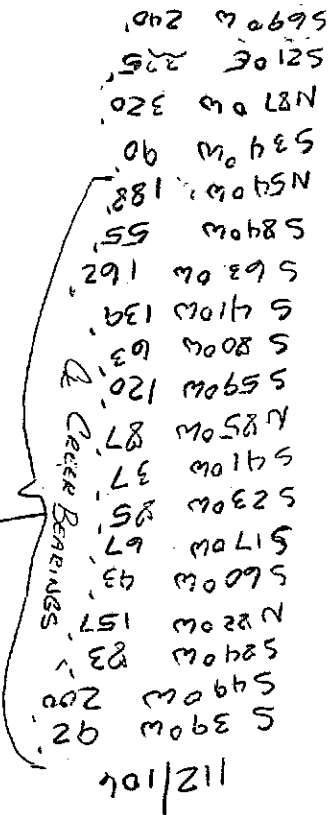 112/104
S 39°W 92'
S49°W 200'
S24°W 83'
N82°W 157'
S60°W 43'
S17°W 67'
S23°W 85'
S41°W 37'
N85°W 87'
S59°W 120'
S 80°W 63'
S 41°W 139'
S 63°W 162'
S84°W 55'
N54°W 188'
S34°W 90'
N87°W 320'
S21°E 325'
S69°W 240'
℄ CREEK BEARINGS